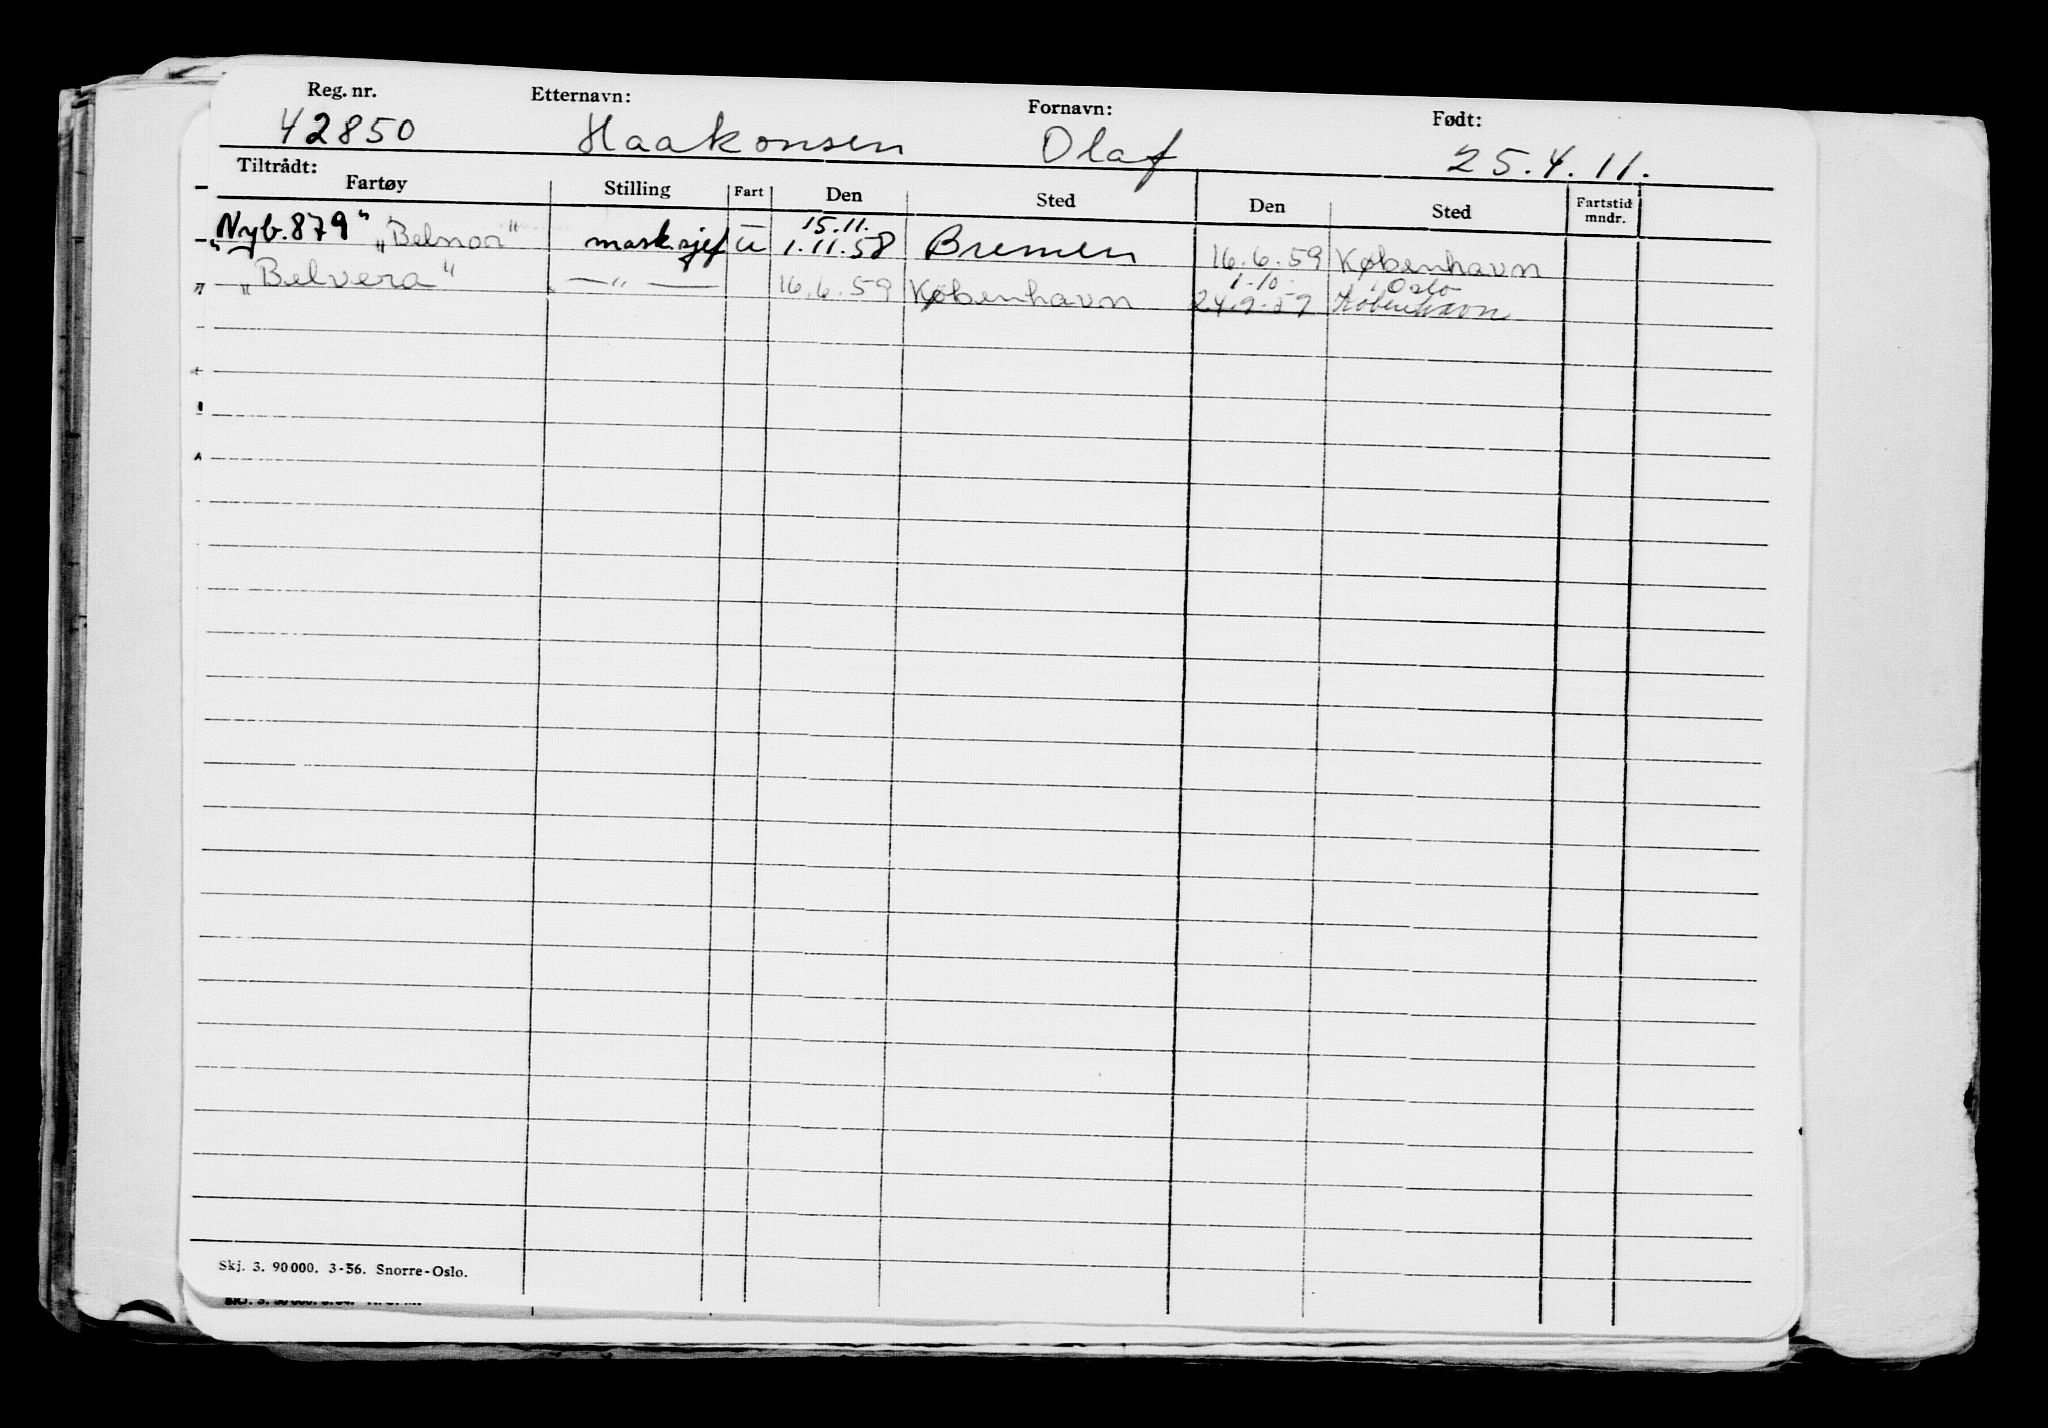 Reg. nr. Etternavn: Fornavn: Født:
42850 Haakonsen Olaf 25.4.11.
Tiltrådt:
Fartøy Stilling Fart Den Sted Den Sted Fartstid mndr.
15.11.
"Nyb. 879" „Belnor" mask.sjef u 1.11.58 Bremen 16.6.59 København
1.10. Oslo
„Belvera" —"— 16.6.59 København 24.9.59 København
Skj. 3. 90 000. 3-56. Snorre-Oslo.